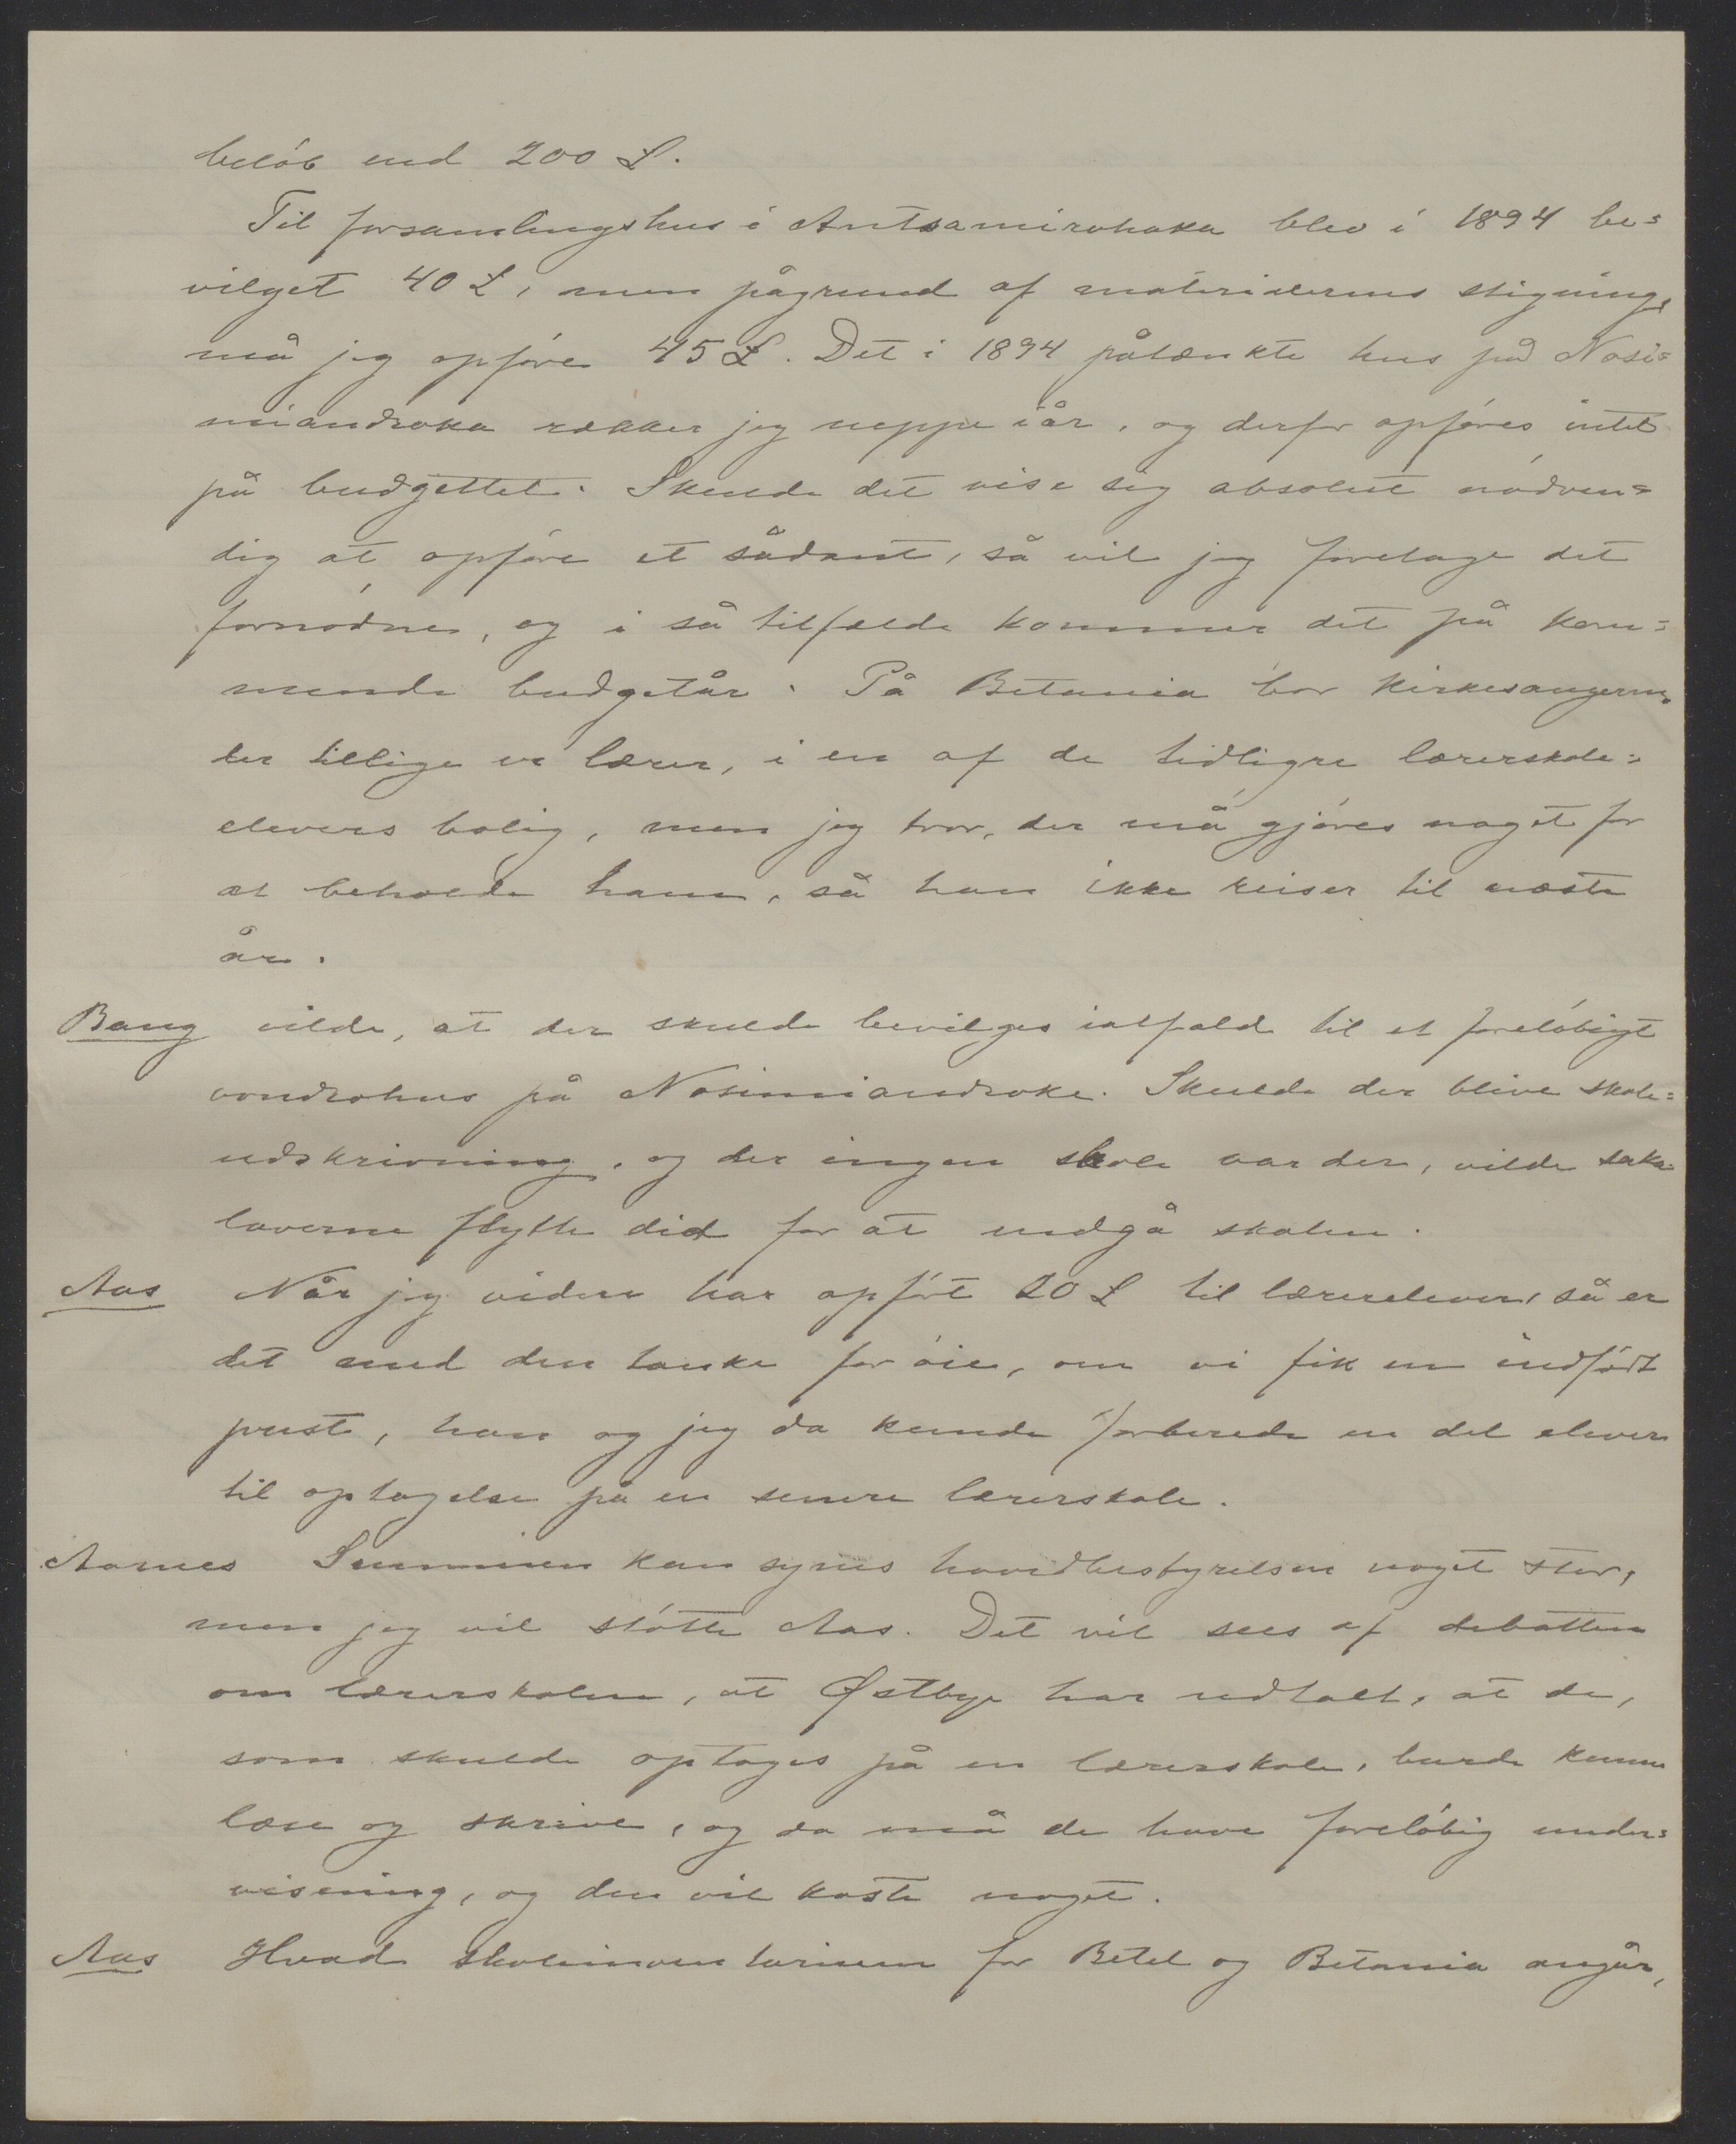 beløb end 200 £.
Til forsamlingshus i Antsamirohaka blev i 1894 be=
vilget 40 £, men pågrund af materialernes stigning,
må jeg opføre 45 £. Det i 1894 påtænkte hus på Nosi=
miandroka rækker jeg neppe iår, og derfor opføres intet
på budgettet. Skulde det vise sig absolut nødven=
dig at opføre et sådant, så vil jeg foretage det
fornødne, og i så tilfælde kommer det på kom=
mende budgetår. På Betania bor kirkesangeren,
der tillige er lærer, i en af de tidligre lærerskole=
elevers bolig, men jeg tror, der må gjøres noget for
at beholde ham, så han ikke reiser til næste
år.
Bang vilde, at der skulde bevilges ialfald til et foreløbigt
vondrohus på Nosimiandroka. Skulde der blive skole=
udskrivning, og der ingen skole var der, vilde saka=
laverne flytte did for at undgå skolen.
Aas Når jeg videre har opført 20 £ til lærerelever, så er
det med den tanke for øie, om vi fik en indført
prest, han og jeg da kunde forberede en del elever
til optagelse på en senere lærerskole.
Aarnes Summen kan synes hovedbestyrelsen noget stor,
men jeg vil støtte Aas. Det vil sees af debatten
om lærerskolen, at Østbye har udtalt, at de,
som skulde optages på en lærerskole, burde kunne
læse og skrive, og da må de have foreløbig under=
visning, og den vil koste noget.
Aas Hvad skoleinventarium for Betel og Betania angår,